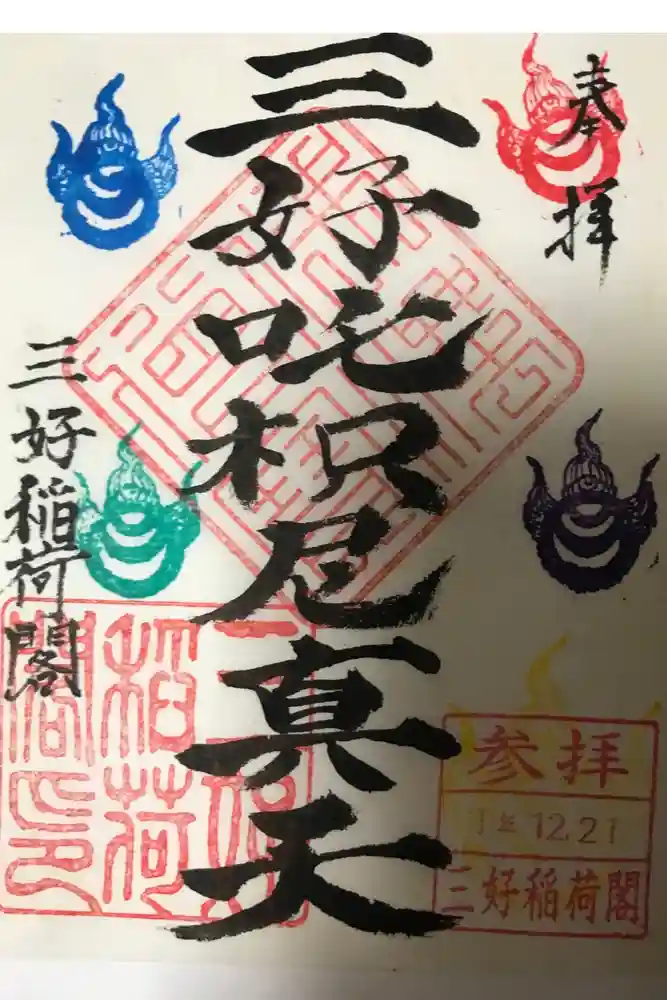 奉拝
三好吒枳尼真天
三好稲荷閣
参拝
12.21
三好稲荷閣
三好稲荷閣印